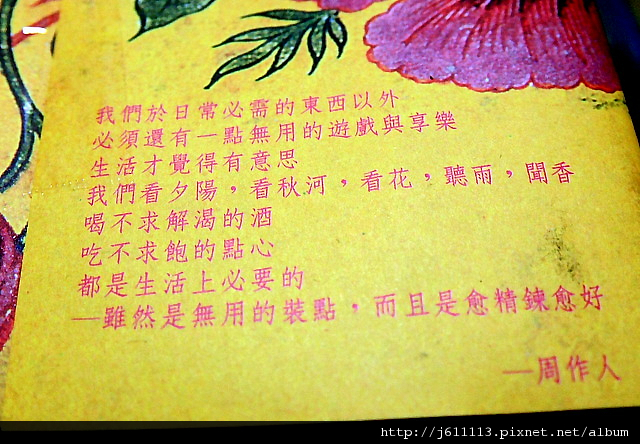 我們於日常必需的東西以外
必須還有一點無用的遊戲與享樂
生活才覺得有意思
我們看夕陽，看秋河，看花，聽雨，聞香
喝不求解渴的酒
吃不求飽的點心
都是生活上必要的
—雖然是無用的裝點，而且是愈精鍊愈好
—周作人
http://j611113.pixnet.net/album